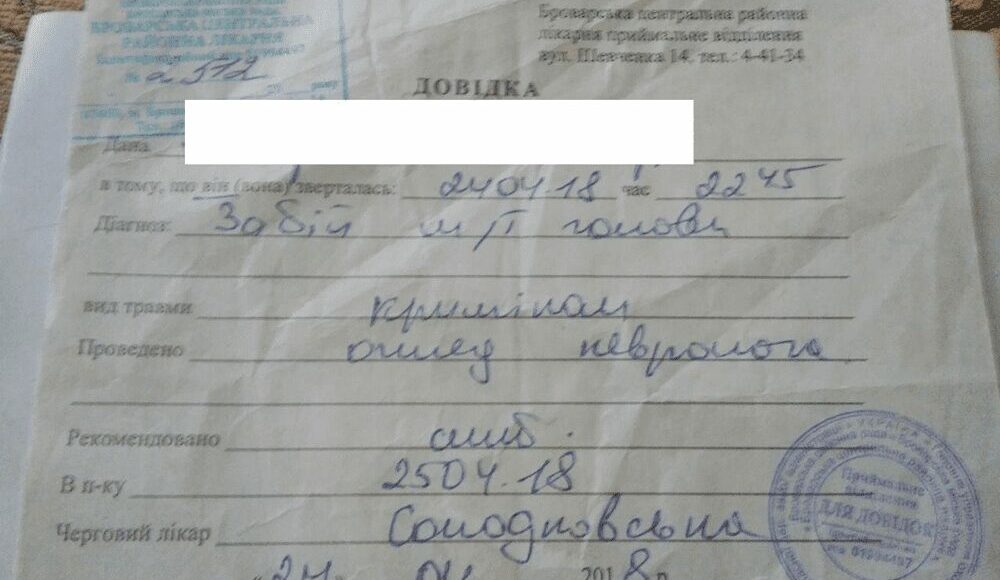 БРОВАРСЬКА ЦЕНТРАЛЬНА
РАЙОННА ЛІКАРНЯ
№ 2572
Броварська центральна районна
лікарня приймальне відділення
вул. Шевченка 14. тел.: 4-41-34
ДОВІДКА
Дана
в тому, що він (вона) зверталась: 24 04. 18 час 22 45
Діагноз Забій м/т голови
вид травми кримінал
Проведено огляд невролога
Рекомендовано амб.
В п-ку 25 04. 18
Черговий лікар
Приймальне
відділення
ДЛЯ ДОВІДОК
"24" 04 2018 р.